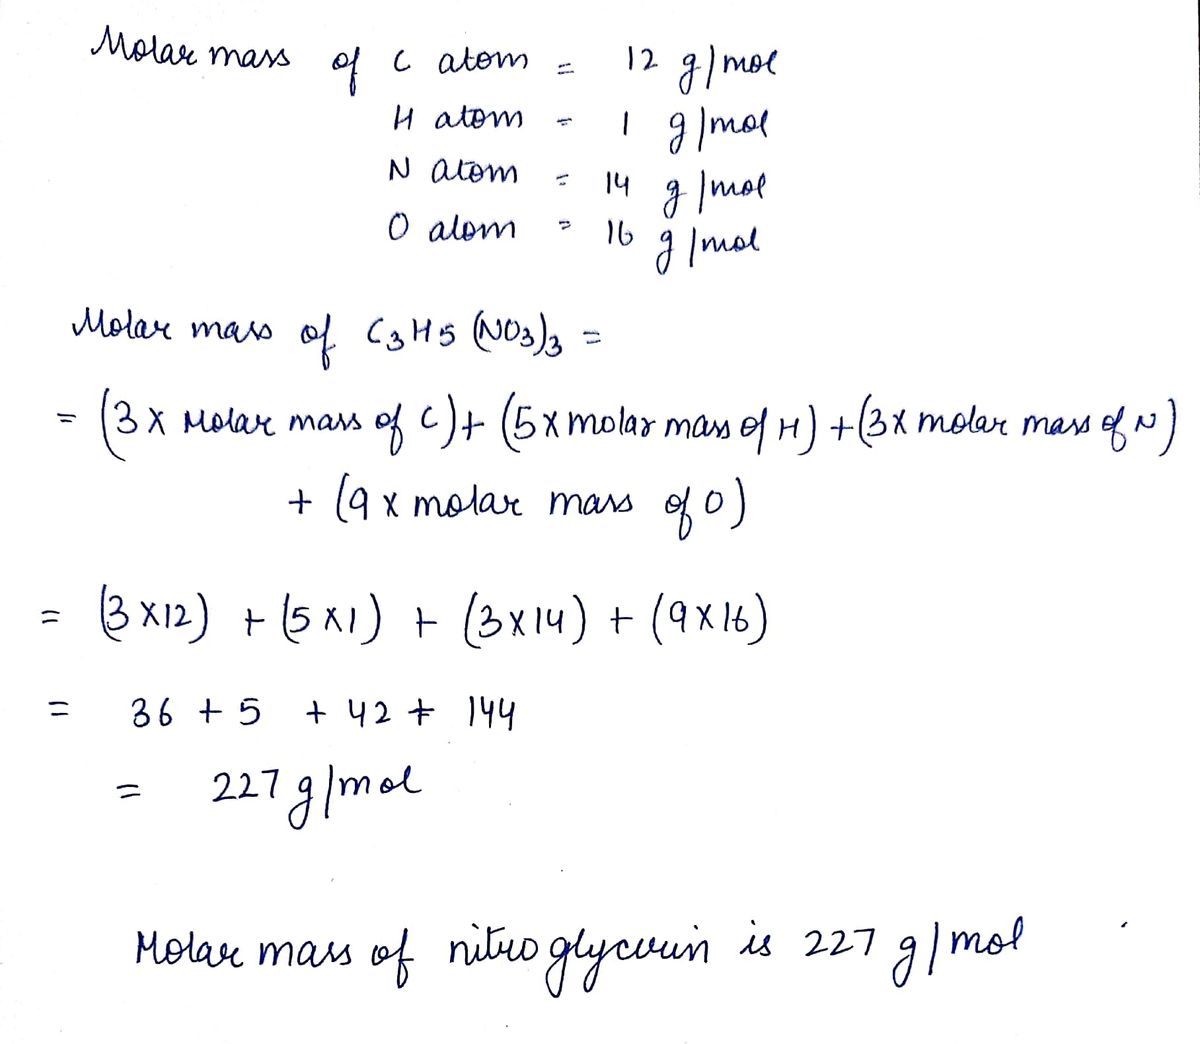 Molar mass of C atom = 12 g/mol
H atom = 1 g/mol
N atom = 14 g/mol
O atom = 16 g/mol
Molar mass of C3H5(NO3)3 =
= (3 x Molar mass of C) + (5 x molar mass of H) + (3 x molar mass of N)
+ (9 x molar mass of O)
= (3 x 12) + (5 x 1) + (3 x 14) + (9 x 16)
= 36 + 5 + 42 + 144
= 227 g/mol
Molar mass of nitroglycerin is 227 g/mol